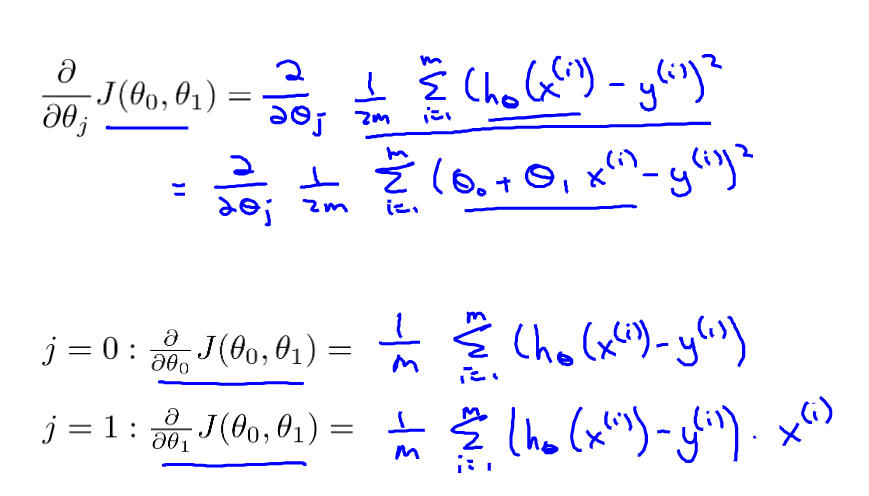 ∂/∂θ_j J(θ₀, θ₁) = ∂/∂θ_j 1/2m Σ_{i=1}^{m} (h_θ(x^{(i)}) - y^{(i)})²
= ∂/∂θ_j 1/2m Σ_{i=1}^{m} (θ₀ + θ₁ x^{(i)} - y^{(i)})²
j = 0 : ∂/∂θ₀ J(θ₀, θ₁) = 1/m Σ_{i=1}^{m} (h_θ(x^{(i)}) - y^{(i)})
j = 1 : ∂/∂θ₁ J(θ₀, θ₁) = 1/m Σ_{i=1}^{m} (h_θ(x^{(i)}) - y^{(i)}) · x^{(i)}